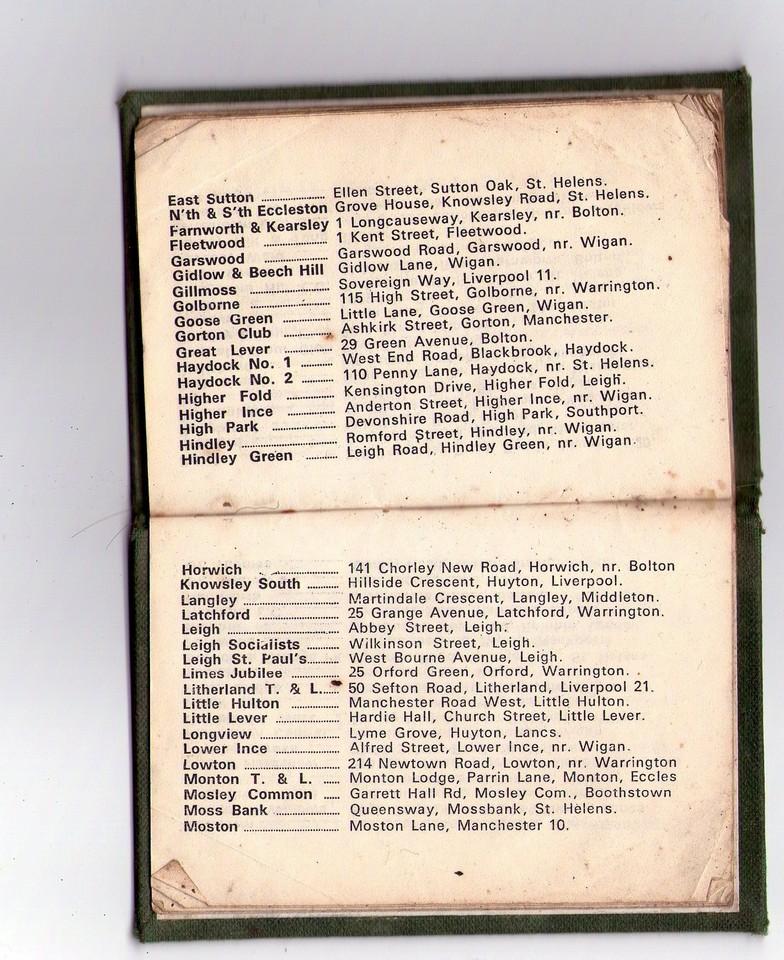 East Sutton ........ Ellen Street, Sutton Oak, St. Helens.
N'th & S'th Eccleston Grove House, Knowsley Road, St. Helens.
Farnworth & Kearsley 1 Longcauseway, Kearsley, nr. Bolton.
Fleetwood ........ 1 Kent Street, Fleetwood.
Garswood ........ Garswood Road, Garswood, nr. Wigan.
Gidlow & Beech Hill Gidlow Lane, Wigan.
Gillmoss ........ Sovereign Way, Liverpool 11.
Golborne ........ 115 High Street, Golborne, nr. Warrington.
Goose Green ........ Little Lane, Goose Green, Wigan.
Gorton Club ........ Ashkirk Street, Gorton, Manchester.
Great Lever ........ 29 Green Avenue, Bolton.
Haydock No. 1 ........ West End Road, Blackbrook, Haydock.
Haydock No. 2 ........ 110 Penny Lane, Haydock, nr. St. Helens.
Higher Fold ........ Kensington Drive, Higher Fold, Leigh.
Higher Ince ........ Anderton Street, Higher Ince, nr. Wigan.
High Park ........ Devonshire Road, High Park, Southport.
Hindley ........ Romford Street, Hindley, nr. Wigan.
Hindley Green ........ Leigh Road, Hindley Green, nr. Wigan.
Horwich ........ 141 Chorley New Road, Horwich, nr. Bolton
Knowsley South ........ Hillside Crescent, Huyton, Liverpool.
Langley ........ Martindale Crescent, Langley, Middleton.
Latchford ........ 25 Grange Avenue, Latchford, Warrington.
Leigh ........ Abbey Street, Leigh.
Leigh Socialists ........ Wilkinson Street, Leigh.
Leigh St. Paul's ........ West Bourne Avenue, Leigh.
Limes Jubilee ........ 25 Orford Green, Orford, Warrington.
Litherland T. & L. .... 50 Sefton Road, Litherland, Liverpool 21.
Little Hulton ........ Manchester Road West, Little Hulton.
Little Lever ........ Hardie Hall, Church Street, Little Lever.
Longview ........ Lyme Grove, Huyton, Lancs.
Lower Ince ........ Alfred Street, Lower Ince, nr. Wigan.
Lowton ........ 214 Newtown Road, Lowton, nr. Warrington
Monton T. & L. ..... Monton Lodge, Parrin Lane, Monton, Eccles
Mosley Common ..... Garrett Hall Rd, Mosley Com., Boothstown
Moss Bank ........ Queensway, Mossbank, St. Helens.
Moston ........ Moston Lane, Manchester 10.